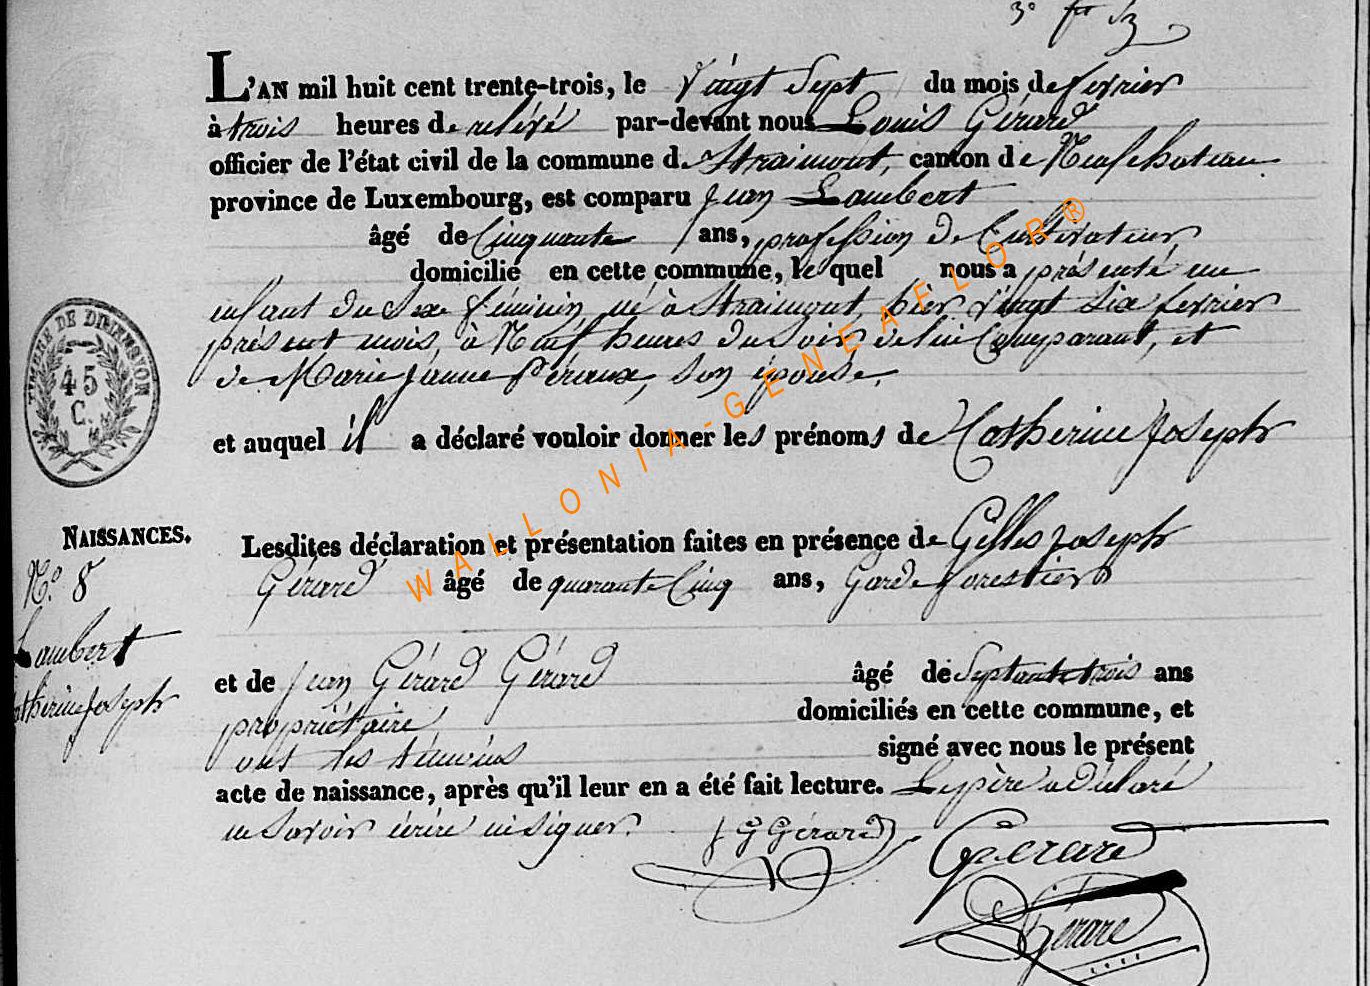 3e
L'AN mil huit cent trente-trois, le vingt sept du mois de fevrier
à trois heures de relévé par-devant nous Louis Gérard
officier de l'état civil de la commune de Straimont, canton de Neufchateau
province de Luxembourg, est comparu Jean Lambert
âgé de Cinquante ans, profession de Cultivateur,
domicilié en cette commune, le quel nous a présenté un
enfant du Sexe féminin né à Straimont, hier vingt six fevrier
présent mois, à Neuf heures du soir de lui Comparant, et
de Marie Jeanne Péraux, son épouse.
et auquel il a déclaré vouloir donner les prénoms de Catherine Joseph
NAISSANCES.
Lesdites déclaration et présentation faites en présence de Gilles Joseph
N.o 8
Gérard âgé de quarante Cinq ans, Garde forestier
Lambert
Catherine Joseph
et de Jean Gérard Gérard âgé de Septante trois ans
propriétaire domiciliés en cette commune, et
ont les témoins signé avec nous le présent
acte de naissance, après qu'il leur en a été fait lecture. Le père a déclaré
ne savoir écrire ni signer.
J G Gérard
Gerard
Gérard
TIMBRE DE DIMENSION
45
C.
WALLONIA-GENEAFLOR®